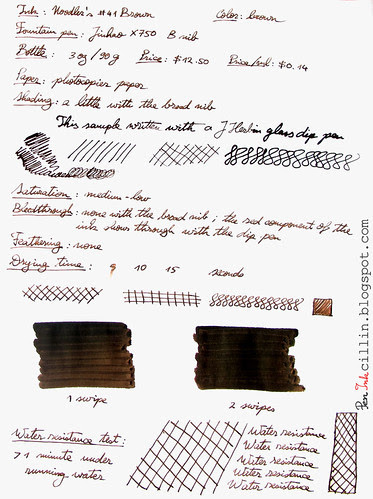 Ink: Noodler's #41 Brown Color: brown
Fountain pen: Jinhao X750 B nib
Bottle: 3 oz/90 g Price: $12.50 Price/ml: $0.14
Paper: photocopier paper
Shading: a little with the broad nib
This sample written with a J Herbin glass dip pen
Saturation: medium-low
Bleedthrough: none with the broad nib; the red component of the
ink shows through with the dip pen
Feathering: none
Drying time: 9 10 15 seconds
1 swipe 2 swipes
Water resistance test:
>1 minute under
running water
Water resistance
Water resistance
Water resistance
Water resistance
Water resistance
Pen Ink cillin.blogspot.com